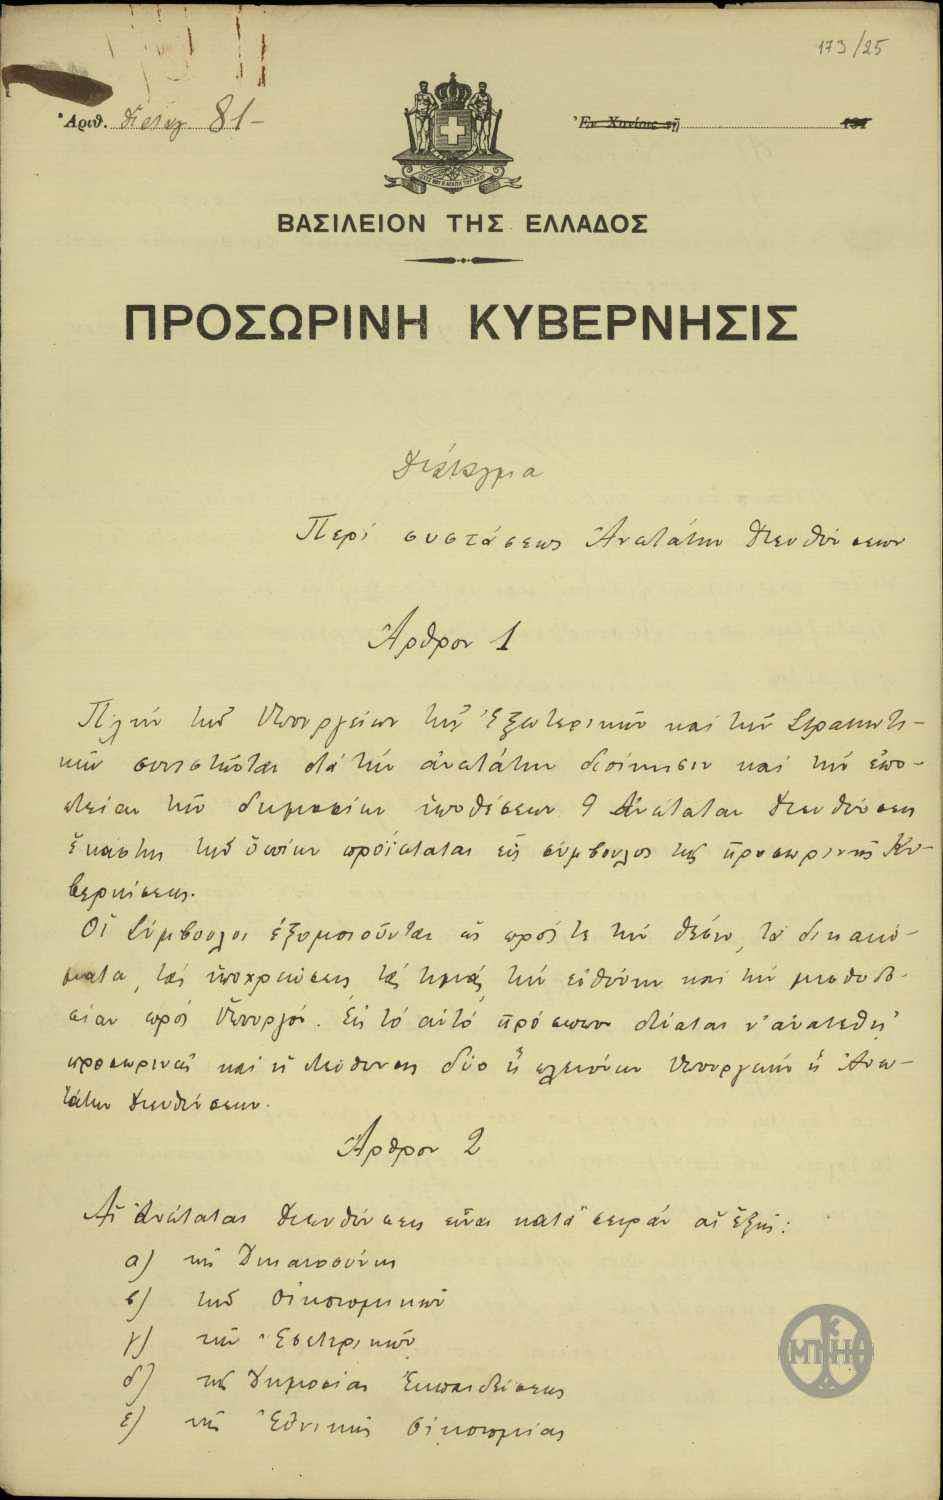 173/25
Ἀριθ. Διαταγ 81-
Ἐν Χανίοις τῇ 191
ΒΑΣΙΛΕΙΟΝ ΤΗΣ ΕΛΛΑΔΟΣ
ΠΡΟΣΩΡΙΝΗ ΚΥΒΕΡΝΗΣΙΣ
Διάταγμα
Περί συστάσεως Ἀνωτάτων Διευθύνσεων
Ἄρθρον 1
Πλήν τῶν Ὑπουργείων τῶν Ἐξωτερικῶν καί τῶν Στρατιωτι-
κῶν συνιστῶνται διά τήν ἀνωτάτην διοίκησιν καί τήν ἐπο-
πτείαν τῶν δημοσίων ὑποθέσεων 9 Ἀνώταται Διευθύνσεις
ἑκάστης τῶν ὁποίων προΐσταται εἷς σύμβουλος τῆς προσωρινῆς Κυ-
βερνήσεως.
Οἱ Σύμβουλοι ἐξομοιοῦνται ὡς πρός τε τήν θέσιν, τά δικαιώ-
ματα, τάς ὑποχρεώσεις, τάς τιμάς, τήν εὐθύνην καί τήν μισθοδο-
σίαν πρός Ὑπουργόν. Εἰς τό αὐτό πρόσωπον δύναται ν' ἀνατεθῇ
προσωρινῶς καί ἡ διεύθυνσις δύο ἤ πλειόνων Ὑπουργείων ἤ Ἀνω-
τάτων Διευθύνσεων.
Ἄρθρον 2
Αἱ Ἀνώταται Διευθύνσεις εἶναι κατά σειράν αἱ ἑξῆς:
α) τῆς Δικαιοσύνης
β) τῶν Οἰκονομικῶν
γ) τῶν Ἐσωτερικῶν
δ) τῆς Δημοσίας Ἐκπαιδεύσεως
ε) τῆς Ἐθνικῆς Οἰκονομίας